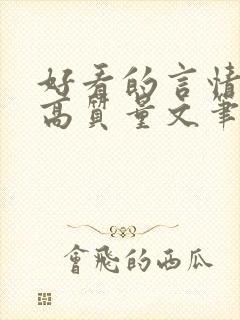 好看的言情
高質量文筆
會飛的西瓜